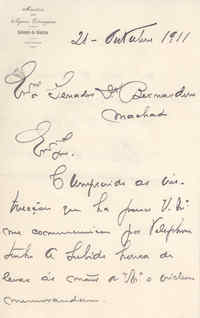 Ministerio
dos
Negocios Estrangeiros
Gabinete do Ministro
21 - Outubro 1911
Exmo Senador Dr Bernardino
Machado
Exmo Sr.
Cumprindo as ins-
trucções que ha pouco V. Exa
me communicou por telephone
tenho a subida honra de
levar ás mãos de V. Exa o
memorandum